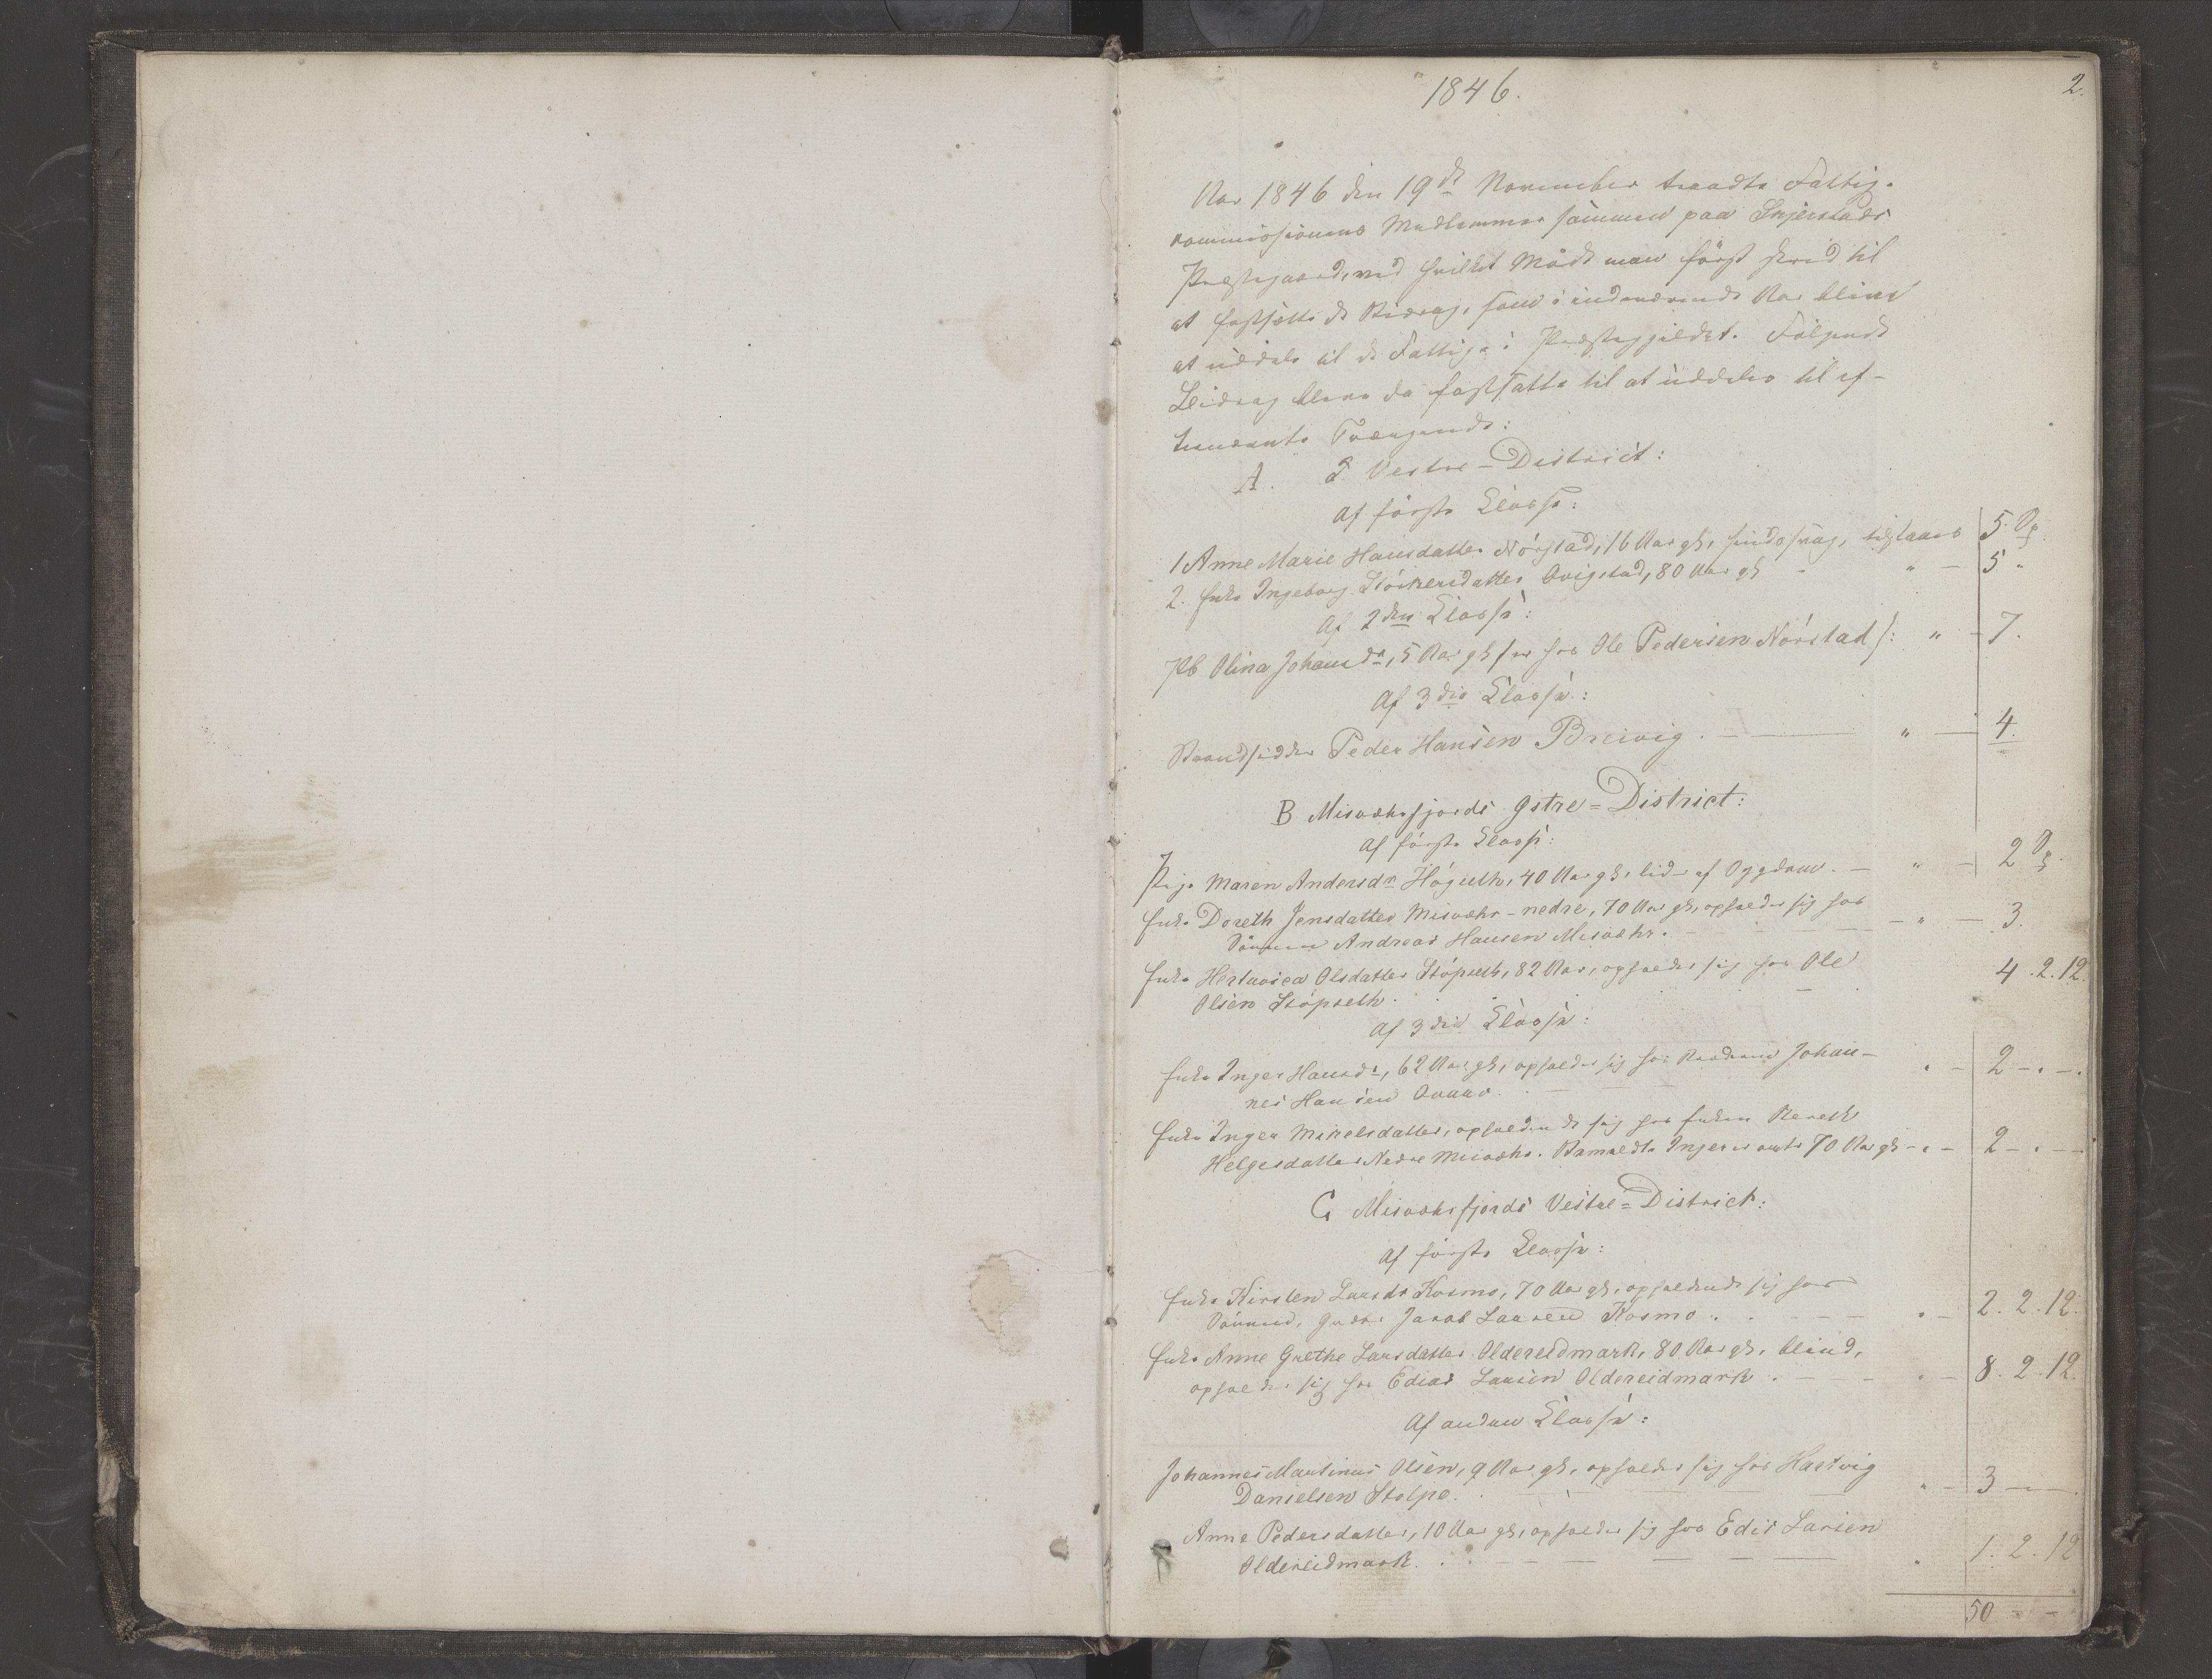 1846.
2.
Aar 1846 den 19de November traadte Fattig-
commissionens Medlemmer sammen paa Skjerstads
Præstegaard, ved hvilket Møde man først skred til
at fastsætte de Bidrag, som i indeværende Aar bliver
at uddele til de Fattige i Præstegjeldet. Følgende
Bidrag bleve da fastsatte til at uddeles til ef-
ternævnte Trængende:
A. I Vestre-District:
Af første Classe:
1 Anne Marie Hansdatter Nörstad, 16 Aar gl, sindssvag, tilstaaes 5
2. Enke Ingeborg Ovigstad, 80 Aar gl " - 5 "
Af 2den Classe:
Olina Johansdr, 5 Aar gl hos Ole Pedersen Nörstad /: " - 7.
Af 3die Classe:
Peder Hansen Breivig. " - 4.
B Misværfjords Østre=District:
Af første Classe:
Pige Maren Andersdr Högseth, 40 Aar gl, lider af - " - 2
Enke Doreth Jensdatter Misvær-nedre, 70 Aar gl, opholder sig hos
Sønnen Andreas Hansen Misvær. - " - 3.
Enke Olsdatter Støpseth, 82 Aar, opholder sig hos Ole 4.2.12.
Olsen Støpseth.
Af 3die Classe:
Enke Inger Hansdr, 62 Aar gl, opholder sig hos Johan- " - 2 - " -
nes Hansen
Enke Inger Mikelsdatter, opholdende sig hos Enken Bereth
Helgesdatter Nedre Misvær. Bemeldte Inger er 70 Aar gl - " - 2 - " -
C Misværfjords Vestre=District:
Af første Classe:
Enke Kirsten Larsdr Kosmo, 70 Aar gl, opholdende sig hos
Sønnen, Jakob Larsen Kosmo. " - 2. 2. 12.
Enke Anne Grethe Larsdatter Oldereidmark, 80 Aar gl, blind,
opholder sig hos Edias Larsen Oldereidmark. " - 8. 2. 12.
Af anden Classe:
Johannes Martinus Olsen, 9 Aar gl, opholder sig hos Hartvig
Danielsen Stolpe. " - 3 -
Anne Pedersdatter, 10 Aar gl, opholder sig hos Edis Larsen
Oldereidmark. " 1. 2. 12
50 - -